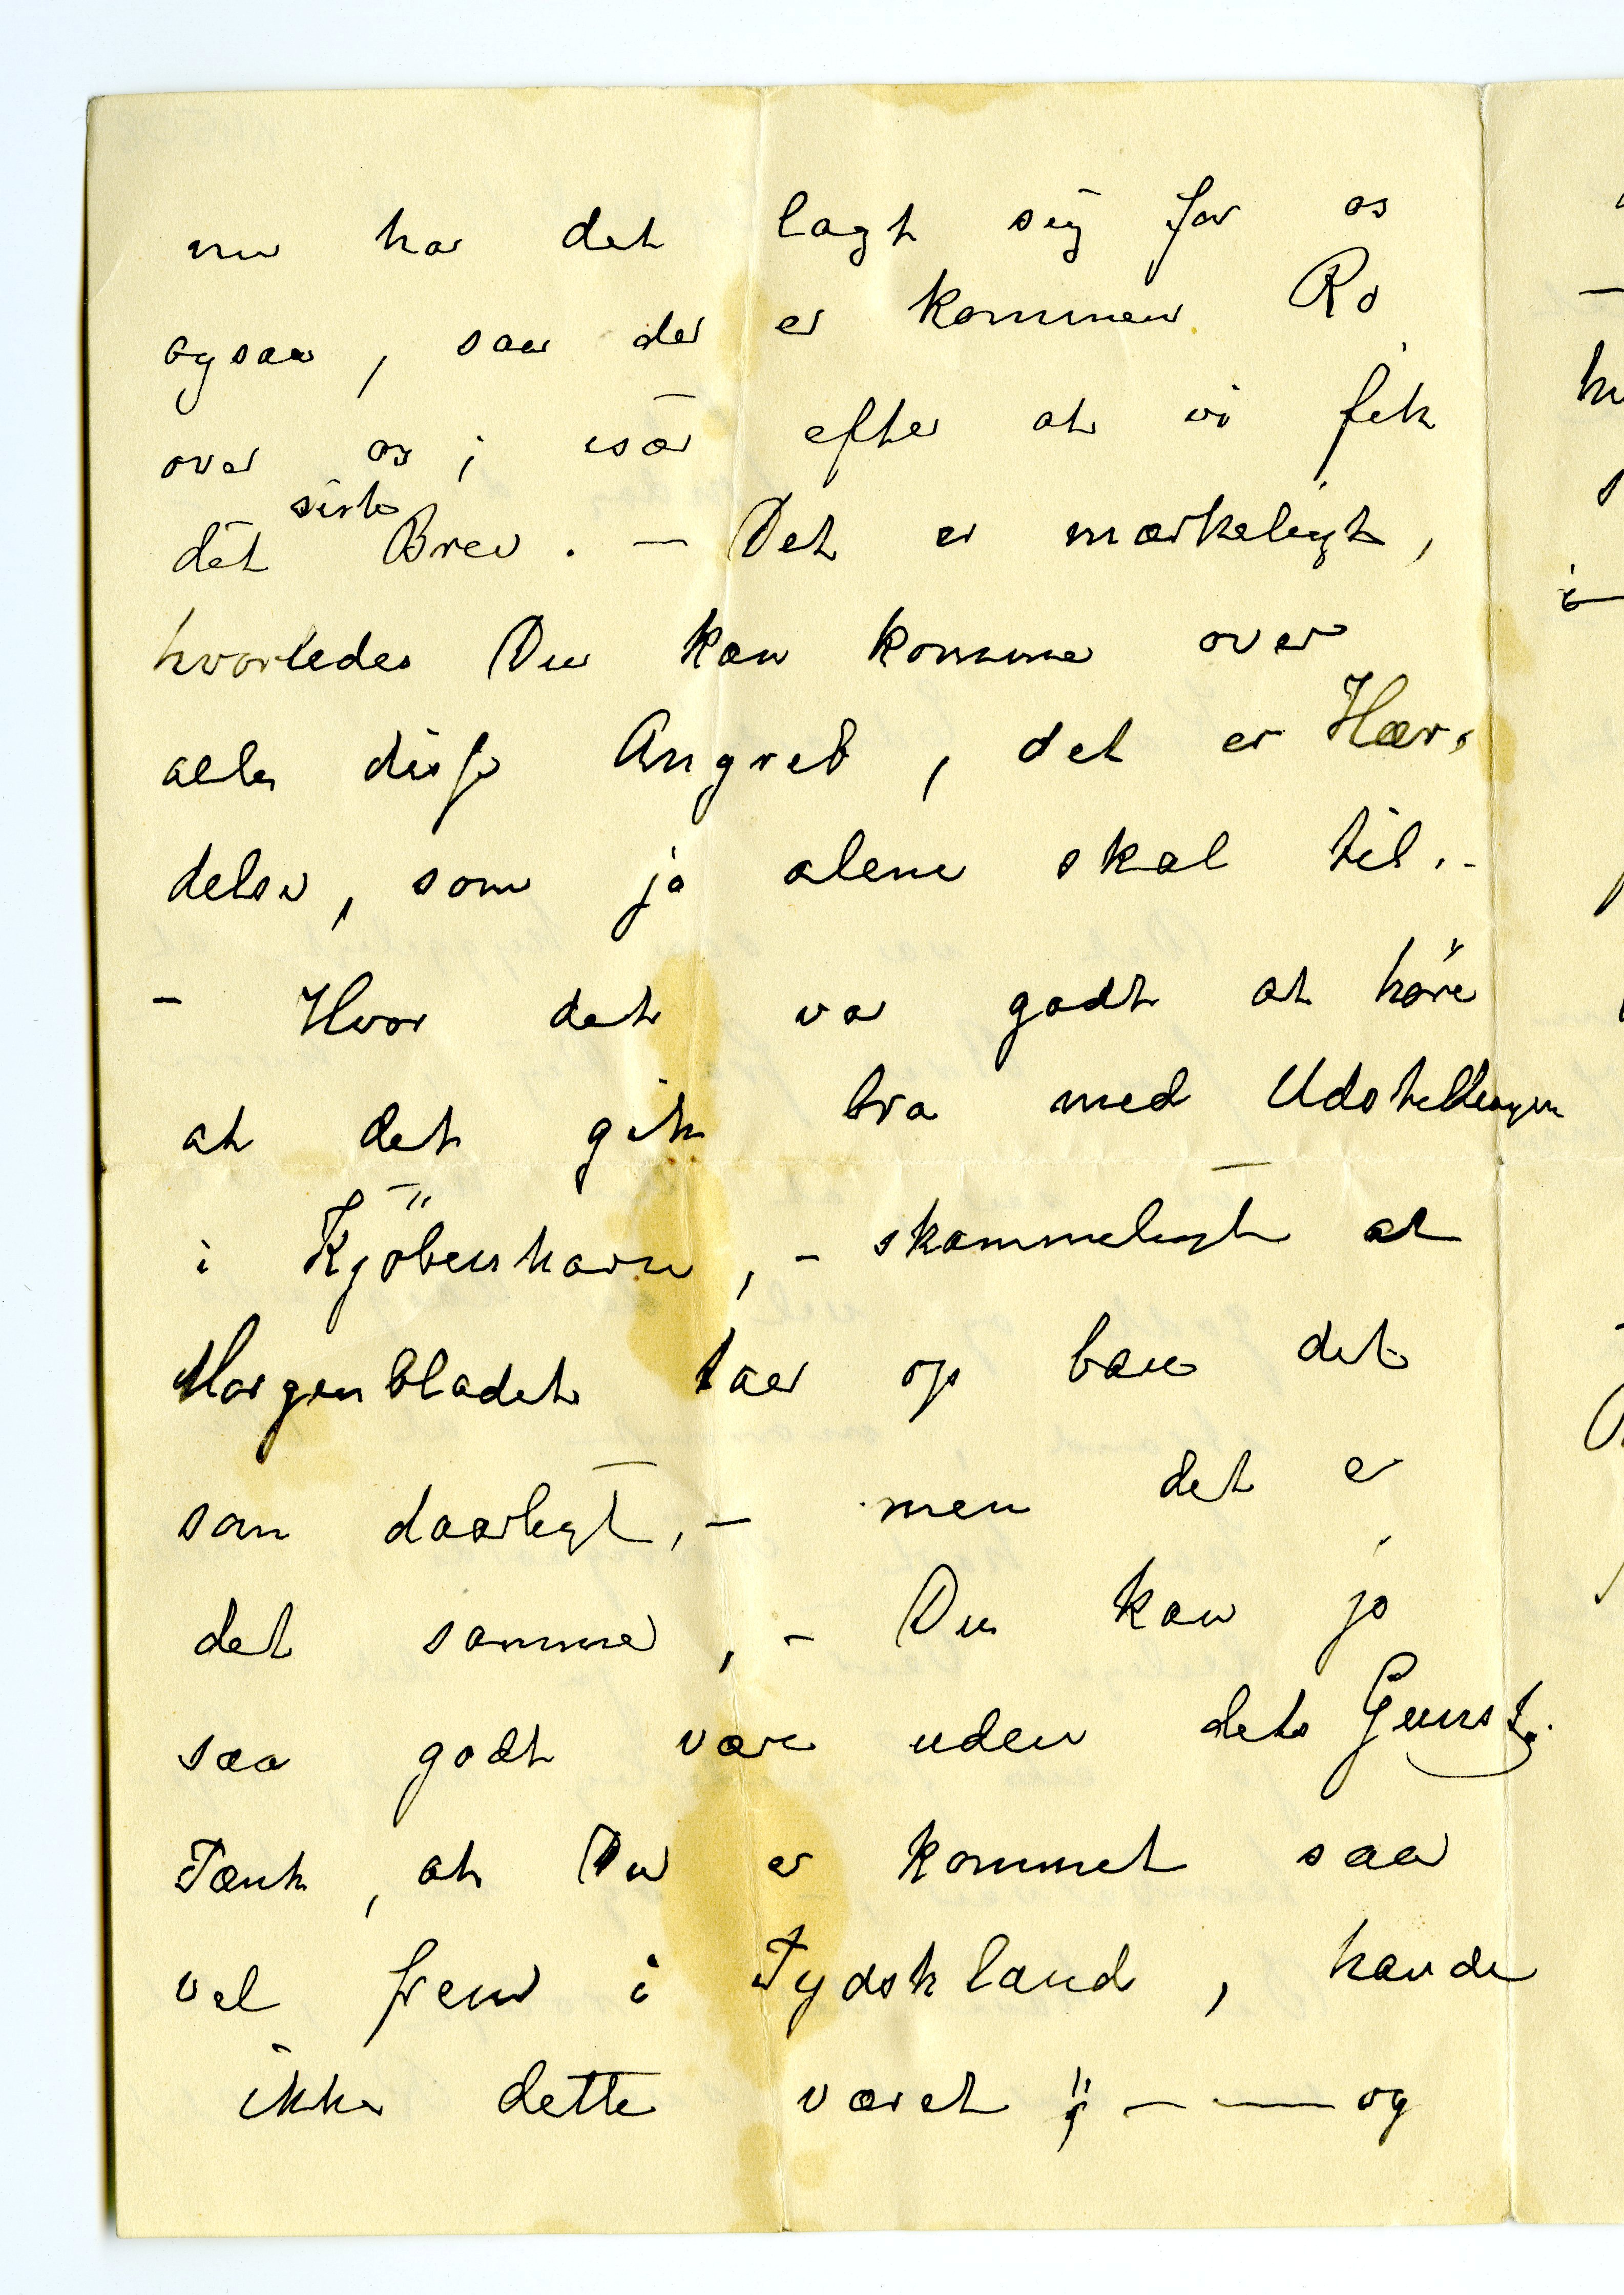 nu har det lagt sig for os
ogsaa, saa der er kommen Ro
over os; især efter at vi fik
det siste Brev. – Det er mærkeligt,
hvorledes Du kan komme over
alle disse Angreb, det er Hær-
delse, som jo alene skal til.-
– Hvor det var godt at høre
at det gik bra med Udstillingen
i Kjöbenhavn, – skammeligt at
Morgenbladet taer op bare det
som daarligt, – men det er
det samme, – Du kan jo
saa godt være uden dets Gunst.
Tænk, at Du er kommet saa
vel frem i Tydskland, havde
ikke dette været – — og